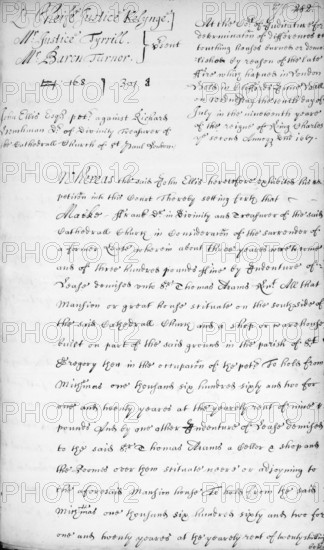 Ld Cheife Justice Kelynge
Mr Justice Tyrrill
Mr Baron Turner
Prsent
342
At the Cort of Judicature for
determinacon of differences
touching houses burned or demo
lished by reason of the late
ffire wch happened in London
holden in Cliffords Inne Hall
on the tenth day of
July in the nineteenth yeare
of the reigne of King Charles
the second Annoqz Dni 1667
John Ellis Esqr petr against Richard
Dr of Divinity Treasurer of
the Cathedrall Church of St Paul London
Whereas the said John Ellis heretofore exhibited his
peticon into this Court Thereby setting forth that
Marke Frank Dr in Divinity and Treasurer of the said
Cathedrall Church in Consideracon of the surrender of
a former Lease wherein about three yeares were to come
and of three hundred pounds ffine by Indenture of
Lease demised unto Sr Thomas Adams Knt All that
Mansion or great house scituate on the southside of
the said Cathedrall Church and a shop or warehouse
built on part of the said ground in the parish of St
Gregory then in the occupacon of the petr To hold from
Michmas one thousand six hundred sixty and two for
one and twenty yeares at the yearely rent of nine
pounds And by one other Indenture of Lease demised
to the said Sr Thomas Adams a Celler a shop and
the Roomes over them scituate neere or adjoyning to
the aforesaid Mansion house To hold from the said
Michmas one thousand six hundred sixty and two for
one and twenty yeares at the yearely rent of twenty shillings
PHOTO12